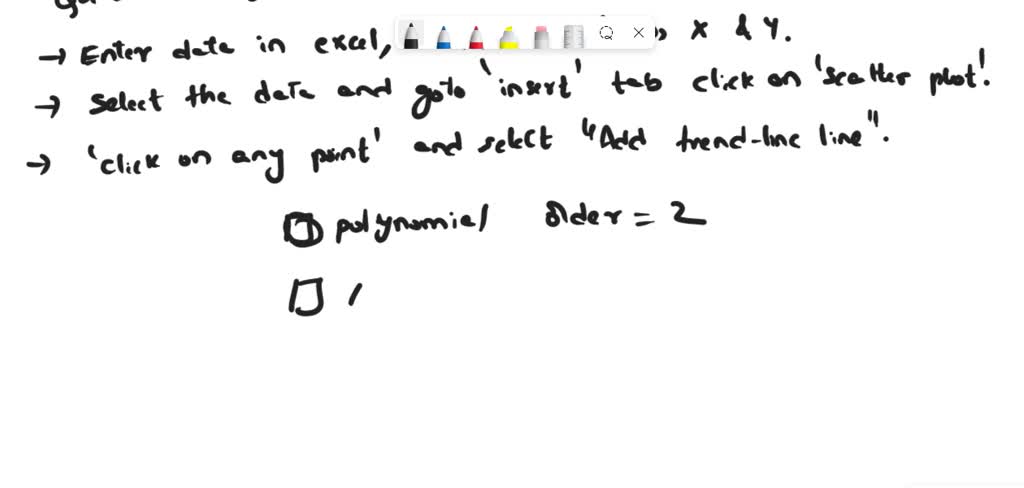 → Enter data in excel, x & y.
→ Select the data and goto 'insert' tab click on 'scatter plot'.
→ 'click on any point' and select "Add trend-line line".
polynomial order = 2